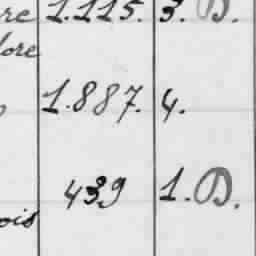 re 1.115. 3. D.
lore
1.887. 4.
439 1. D.
ois